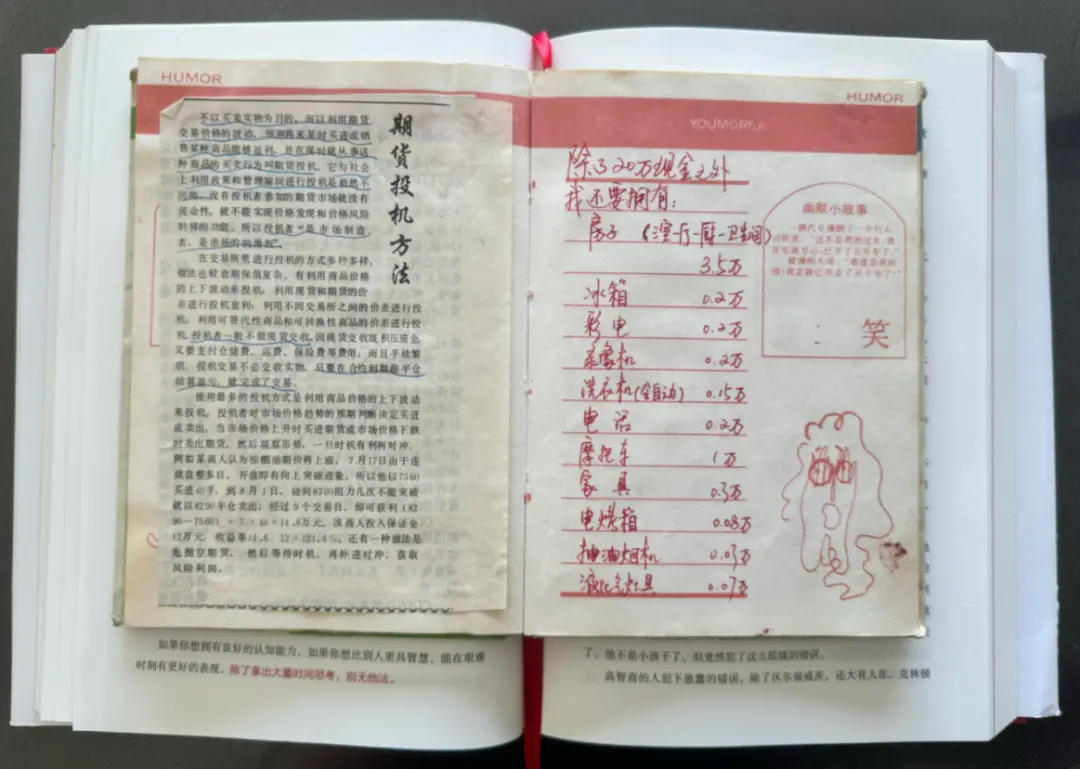 HUMOR
期货投机方法
不以买卖实物为目的，而以利用期货
交易价格的波动，预测将来某时买进或销
售某种商品能够盈利，并在现时就从事这
种商品的买卖行为叫期货投机。它与社会
上利用政策和管理漏洞进行投机是截然不
同的。没有投机者参加的期货市场就没有
流动性，就不能实现价格发现和价格风险
转移的功能。所以投机者“是市场制造
者，是市场的润滑剂”。
在交易所里进行投机的方式多种多样，
做法也较套期保值复杂。有利用商品价格
的上下波动来投机；利用现货和期货的价
差进行投机套利；利用不同交易所之间的价差进行投
机；利用可替代性商品和可转换性商品的价差进行投
机。投机者一般不做现货交收，因现货交收既积压资金，
又要支付仓储费、运费、保险费等费用，而且手续繁
琐。投机交易不必交收实物，只要在合约到期前平仓
结算盈亏，就完成了交易。
能用最多的投机方式是利用商品价格的上下波动
来投机。投机者对市场价格趋势的预期判断决定买进
或卖出，当市场价格上升时买进期货或市场价格下跌
时卖出期货，然后观察形势，一旦时机有利再对冲。
例如某商人认为棕榈油期价将上涨，7月17日由于连
续盘整多日，开盘即有向上突破迹象，所以他以7560
买进40手，到8月1日，碰到8300阻力几次不能突破
就以8290平仓卖出，经过9个交易日，即可获利(82
90—7560)×5×40=14.6万元。该商人投入保证金
12万元，收益率14.6 12=121.6%。还有一种做法是
先抛空期货，然后等待时机，再补进对冲，获取
风险利润。
如果你想拥有良好的认知能力，如果你想比别人更具智慧，能在艰难
时刻有更好的表现，除了拿出大量的时间思考，别无他法。
HUMOR
YOUMORIJI
除了20万现金之外
我还要拥有：
房子（三室一厅一厨一卫生间）
3.5万
冰箱 0.2万
彩电 0.2万
录像机 0.2万
洗衣机(全自动) 0.15万
电话 0.2万
摩托车 1万
家具 0.3万
电烤箱 0.08万
抽油烟机 0.03万
液化气灶具 0.07万
幽默小故事
笑
了，他不是小孩子了，但竟然犯了这么低级的错误。
高智商的人犯下愚蠢的错误，除了沃尔福威茨，还大有人在。克林顿